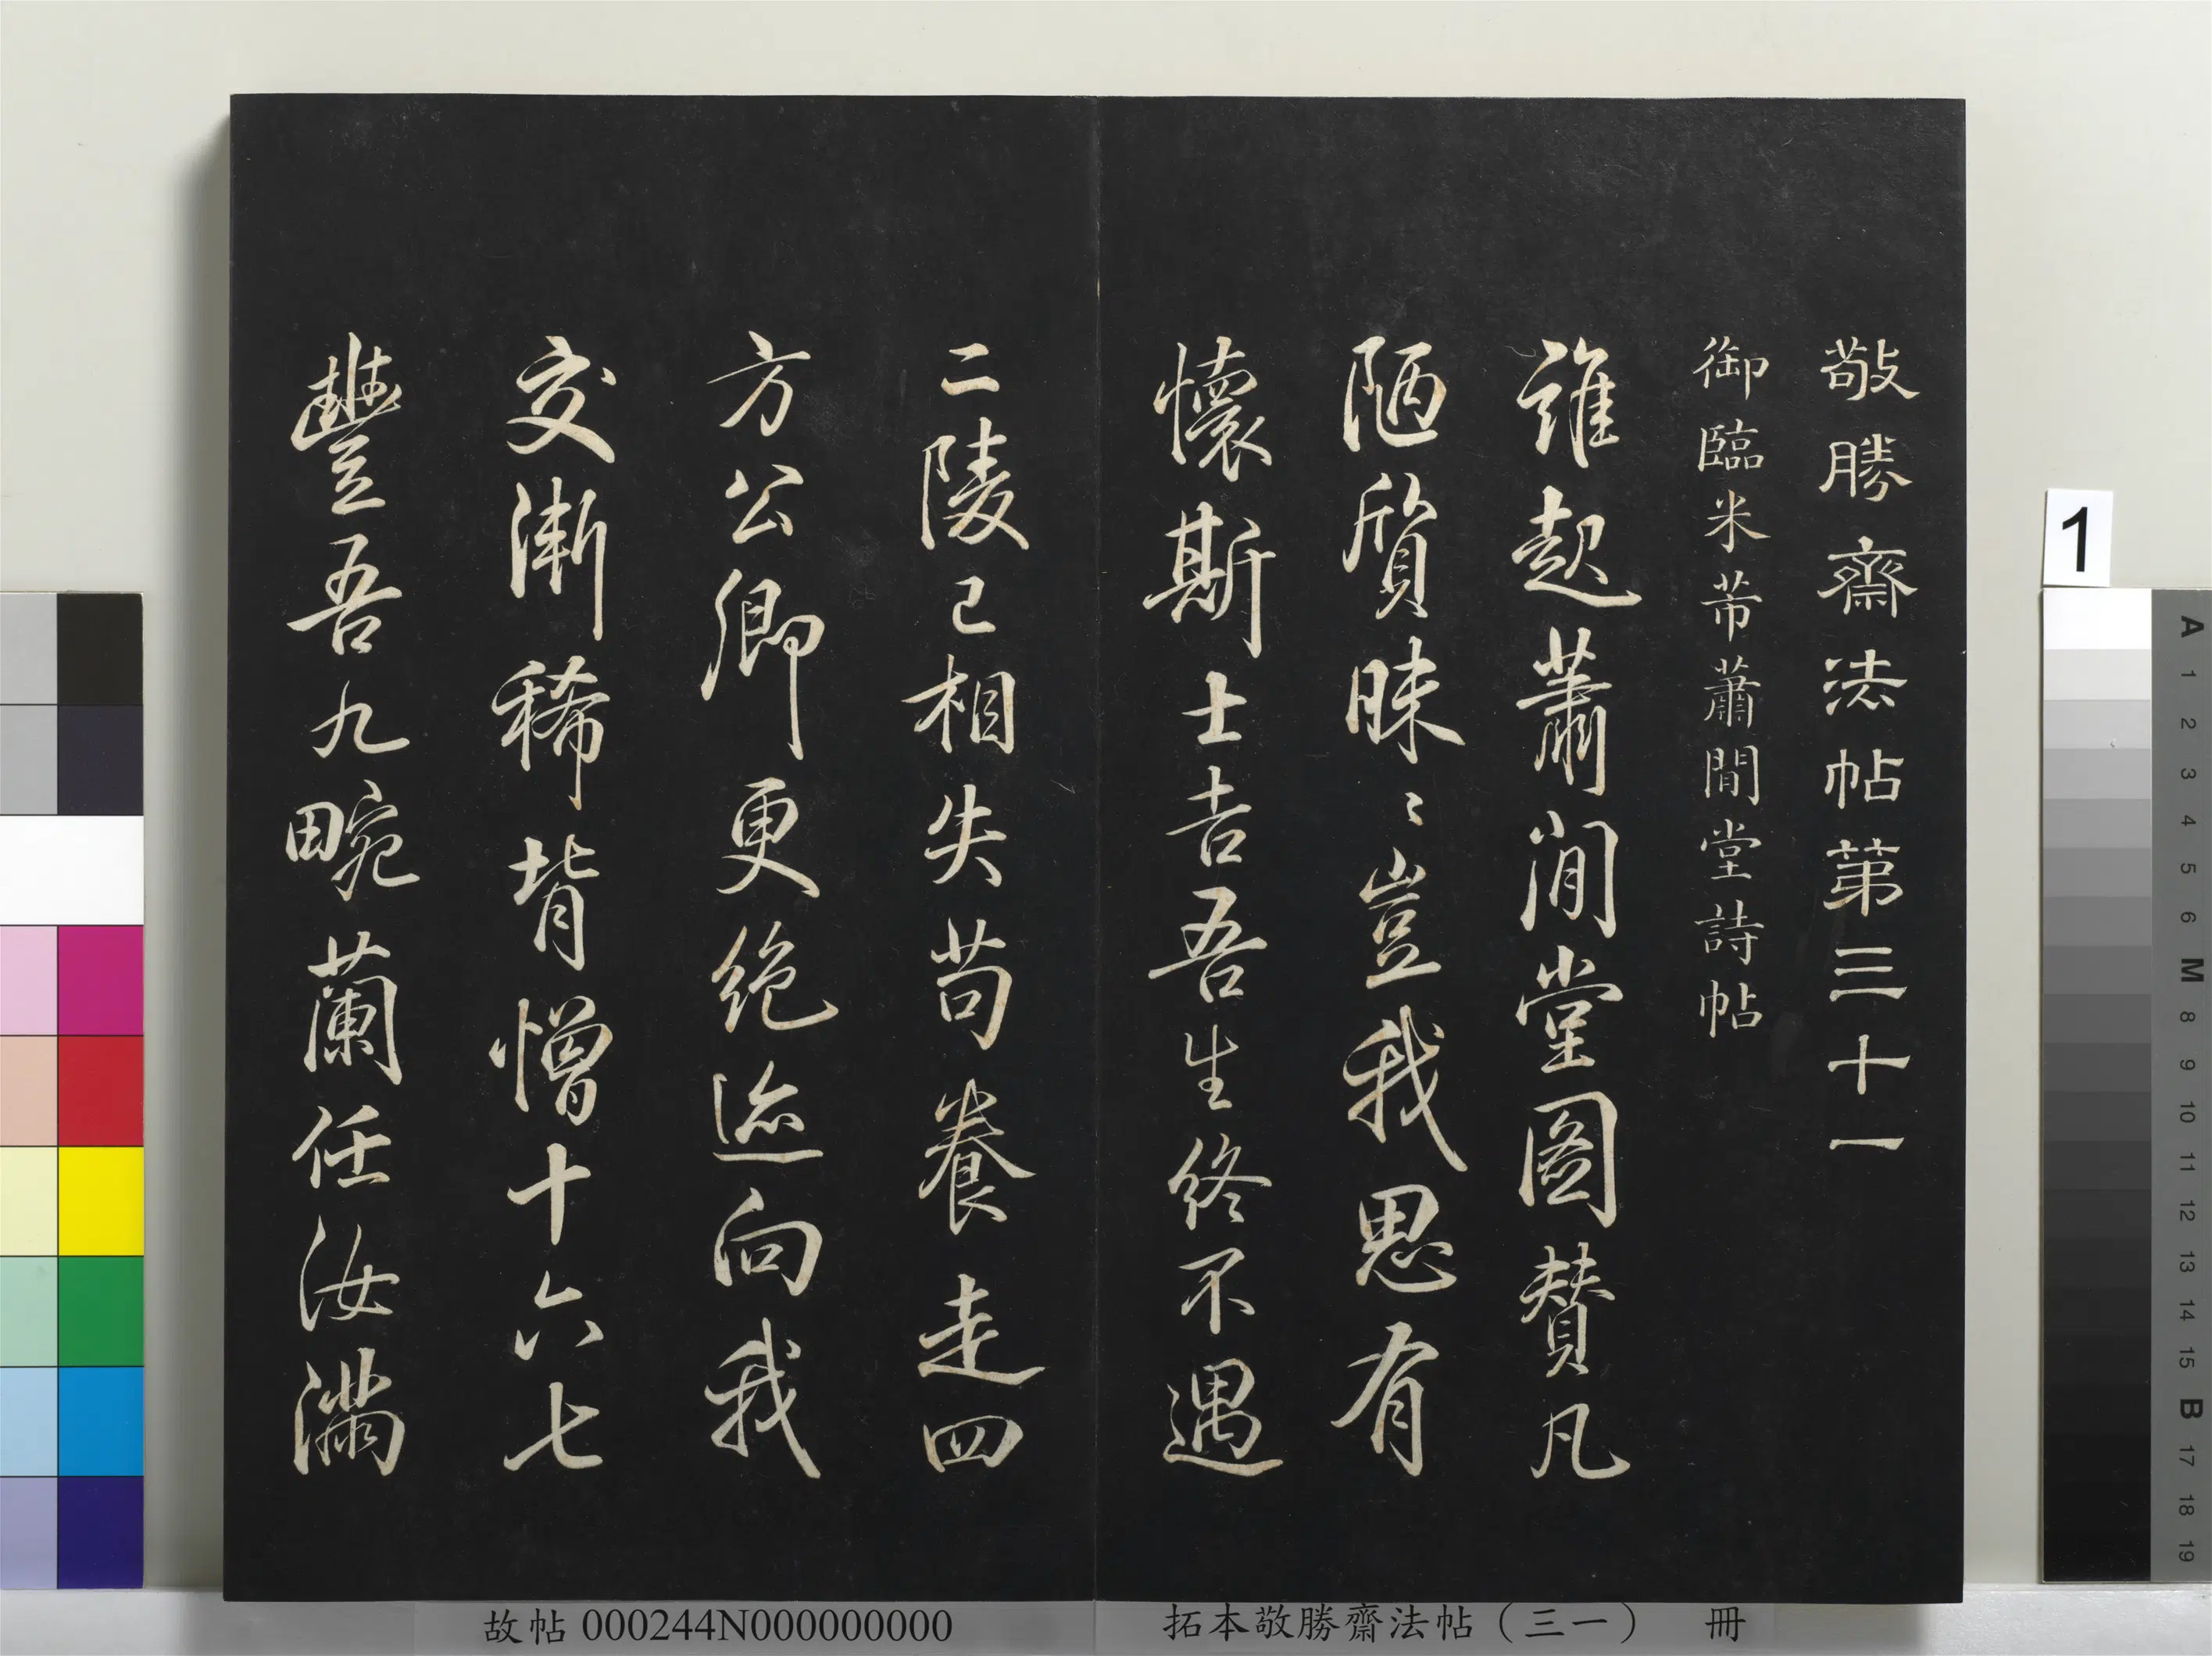 敬勝齋法帖第三十一
御臨米芾蕭閒堂詩帖
誰起蕭閒堂圖賛凡
陋質昧〻豈我思有
懷斯士吉吾生終不遇
二陵已相失苟養走四
方公卿更絶迹向我
交漸稀背憎十六七
豐吾九畹蘭任汝滿
1
A
1
2
3
4
5
6
M
8
9
10
11
12
13
14
15
B
17
18
19
故帖 000244N000000000
拓本敬勝齋法帖（三一） 冊